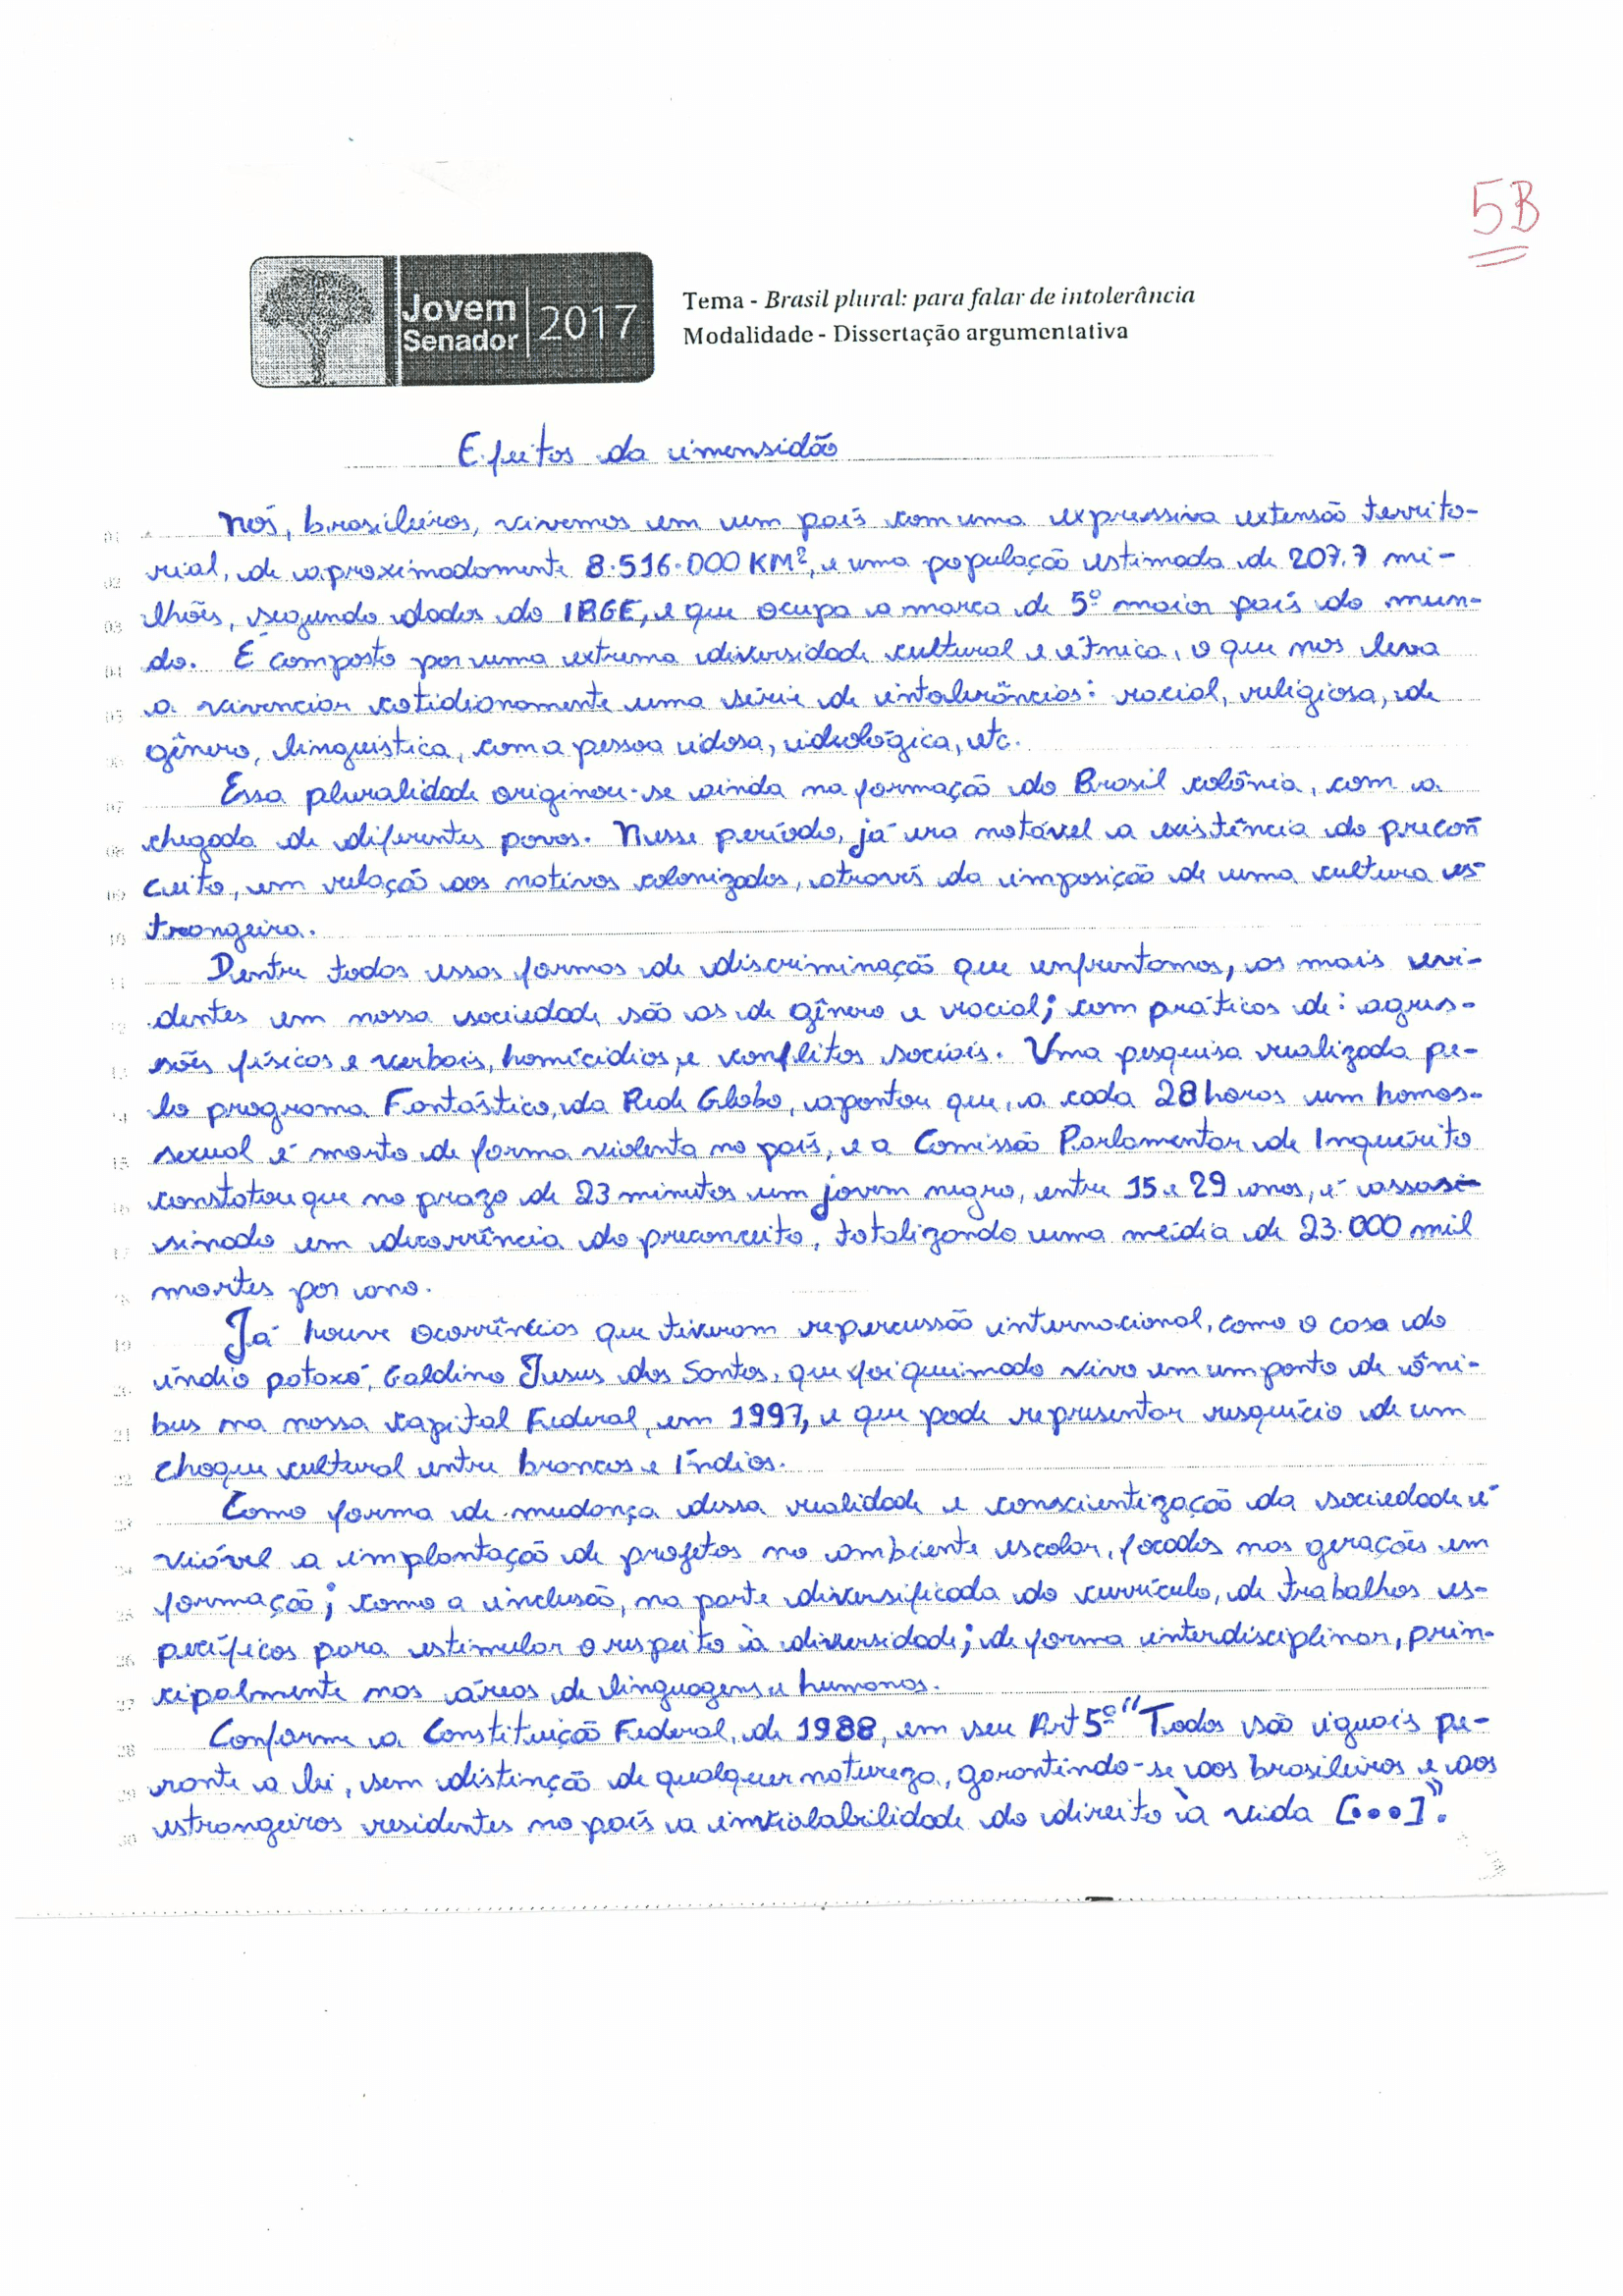 5B
Jovem
Senador
2017
Tema - Brasil plural: para falar de intolerância
Modalidade - Dissertação argumentativa
Efeitos da imensidão
01 Nós, brasileiros, vivemos em um país com uma expressiva extensão territo-
02 rial, de aproximadamente 8.516.000 KM², e uma população estimada de 207.7 mi-
03 lhões, segundo dados do IBGE, e que ocupa a marca de 5º maior país do mun-
04 do. É composto por uma extrema diversidade cultural e étnica, o que nos leva
05 a vivenciar cotidianamente uma série de intolerâncias: racial, religiosa, de
06 gênero, linguistica, com a pessoa idosa, ideológica, etc.
07 Essa pluralidade originou-se ainda na formação do Brasil colônia, com a
08 chegada de diferentes povos. Nesse período, já era notável a existência do precon
09 ceito, em relação aos nativos colonizados, através da imposição de uma cultura es-
10 trangeira.
11 Dentre todas essas formas de discriminação que enfrentamos, as mais evi-
12 dentes em nossa sociedade são as de gênero e racial; com práticas de: agres-
13 sões físicas e verbais, homicídios, e conflitos sociais. Uma pesquisa realizada pe-
14 lo programa Fantástico, da Rede Globo, apontou que, a cada 28 horas um homos-
15 sexual é morto de forma violenta no país, e a Comissão Parlamentar de Inquérito
16 constatou que no prazo de 23 minutos um jovem negro, entre 15 e 29 anos, é assas
17 sinado em decorrência do preconceito, totalizando uma média de 23.000 mil
18 mortes por ano.
19 Já houve ocorrências que tiveram repercussão internacional, como o caso do
20 índio pataxó, Galdino Jesus dos Santos, que foi queimado vivo em um ponto de ôni-
21 bus na nossa Capital Federal, em 1997, e que pode representar resquício de um
22 choque cultural entre brancos e índios.
23 Como forma de mudança dessa realidade e conscientização da sociedade é
24 viável a implantação de projetos no ambiente escolar, focados nas gerações em
25 formação; como a inclusão, na parte diversificada do currículo, de trabalhos es-
26 pecíficos para estimular o respeito à diversidade; de forma interdisciplinar, prin-
27 cipalmente nas áreas de linguagens e humanas.
28 Conforme a Constituição Federal, de 1988, em seu Art 5º "Todos são iguais pe-
29 rante a lei, sem distinção de qualquer natureza, garantindo-se aos brasileiros e aos
30 estrangeiros residentes no país a inviolabilidade do direito à vida [...]".